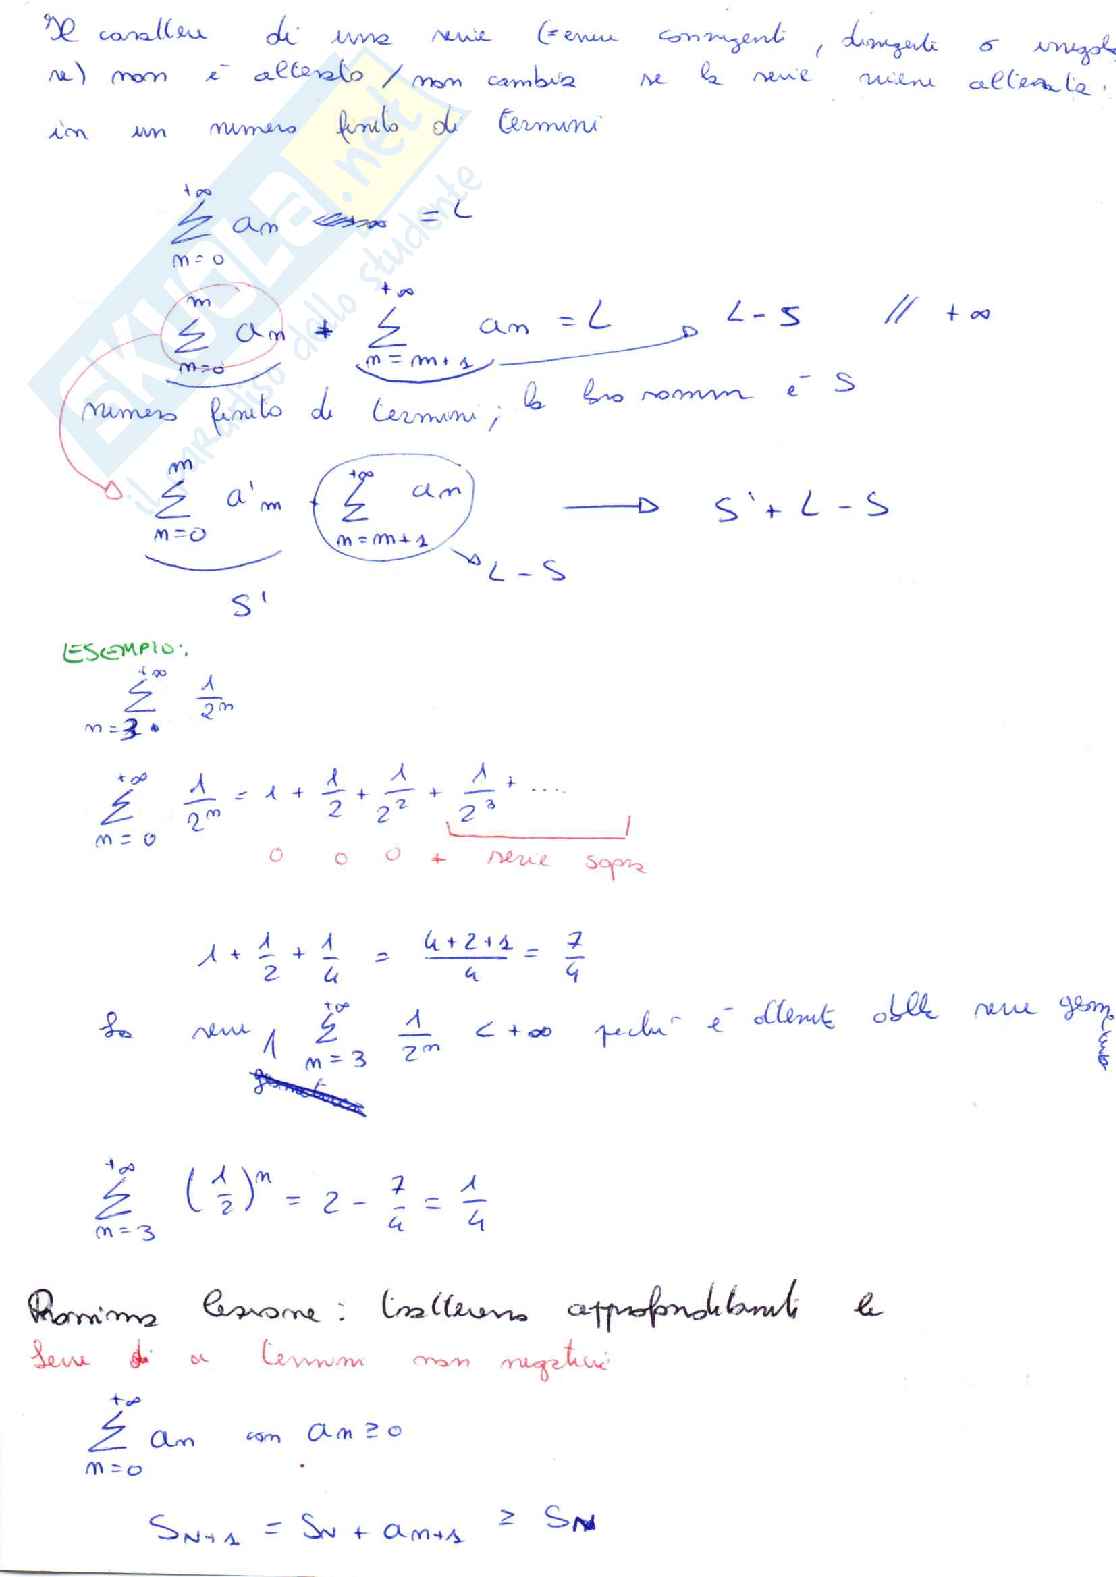 Il carattere di una serie (essere convergenti, divergenti o irregola
re) non è alterato / non cambia se la serie viene alterata
in un numero finito di termini
+∞ Σ n=0 an = L
m Σ n=0 an + +∞ Σ n=m+1 an = L → L-S // +∞
numero finito di termini; la loro somma è S
m Σ n=0 a'm + +∞ Σ n=m+1 an → S' + L - S
S' L - S
ESEMPIO:
+∞ Σ n=3 1/2^n
+∞ Σ n=0 1/2^n = 1 + 1/2 + 1/2^2 + 1/2^3 + ....
0 0 0 + serie sopra
1 + 1/2 + 1/4 = (4+2+1)/4 = 7/4
La serie +∞ Σ n=3 1/2^n < +∞ perché è ottenuta dalla serie geometrica
+∞ Σ n=3 (1/2)^n = 2 - 7/4 = 1/4
Prossima lezione: tratteremo approfonditamente le
Serie di a termini non negativi
+∞ Σ n=0 an con an ≥ 0
SN+1 = SN + an+1 ≥ SN
SKUOLA.net
il paradiso dello studente